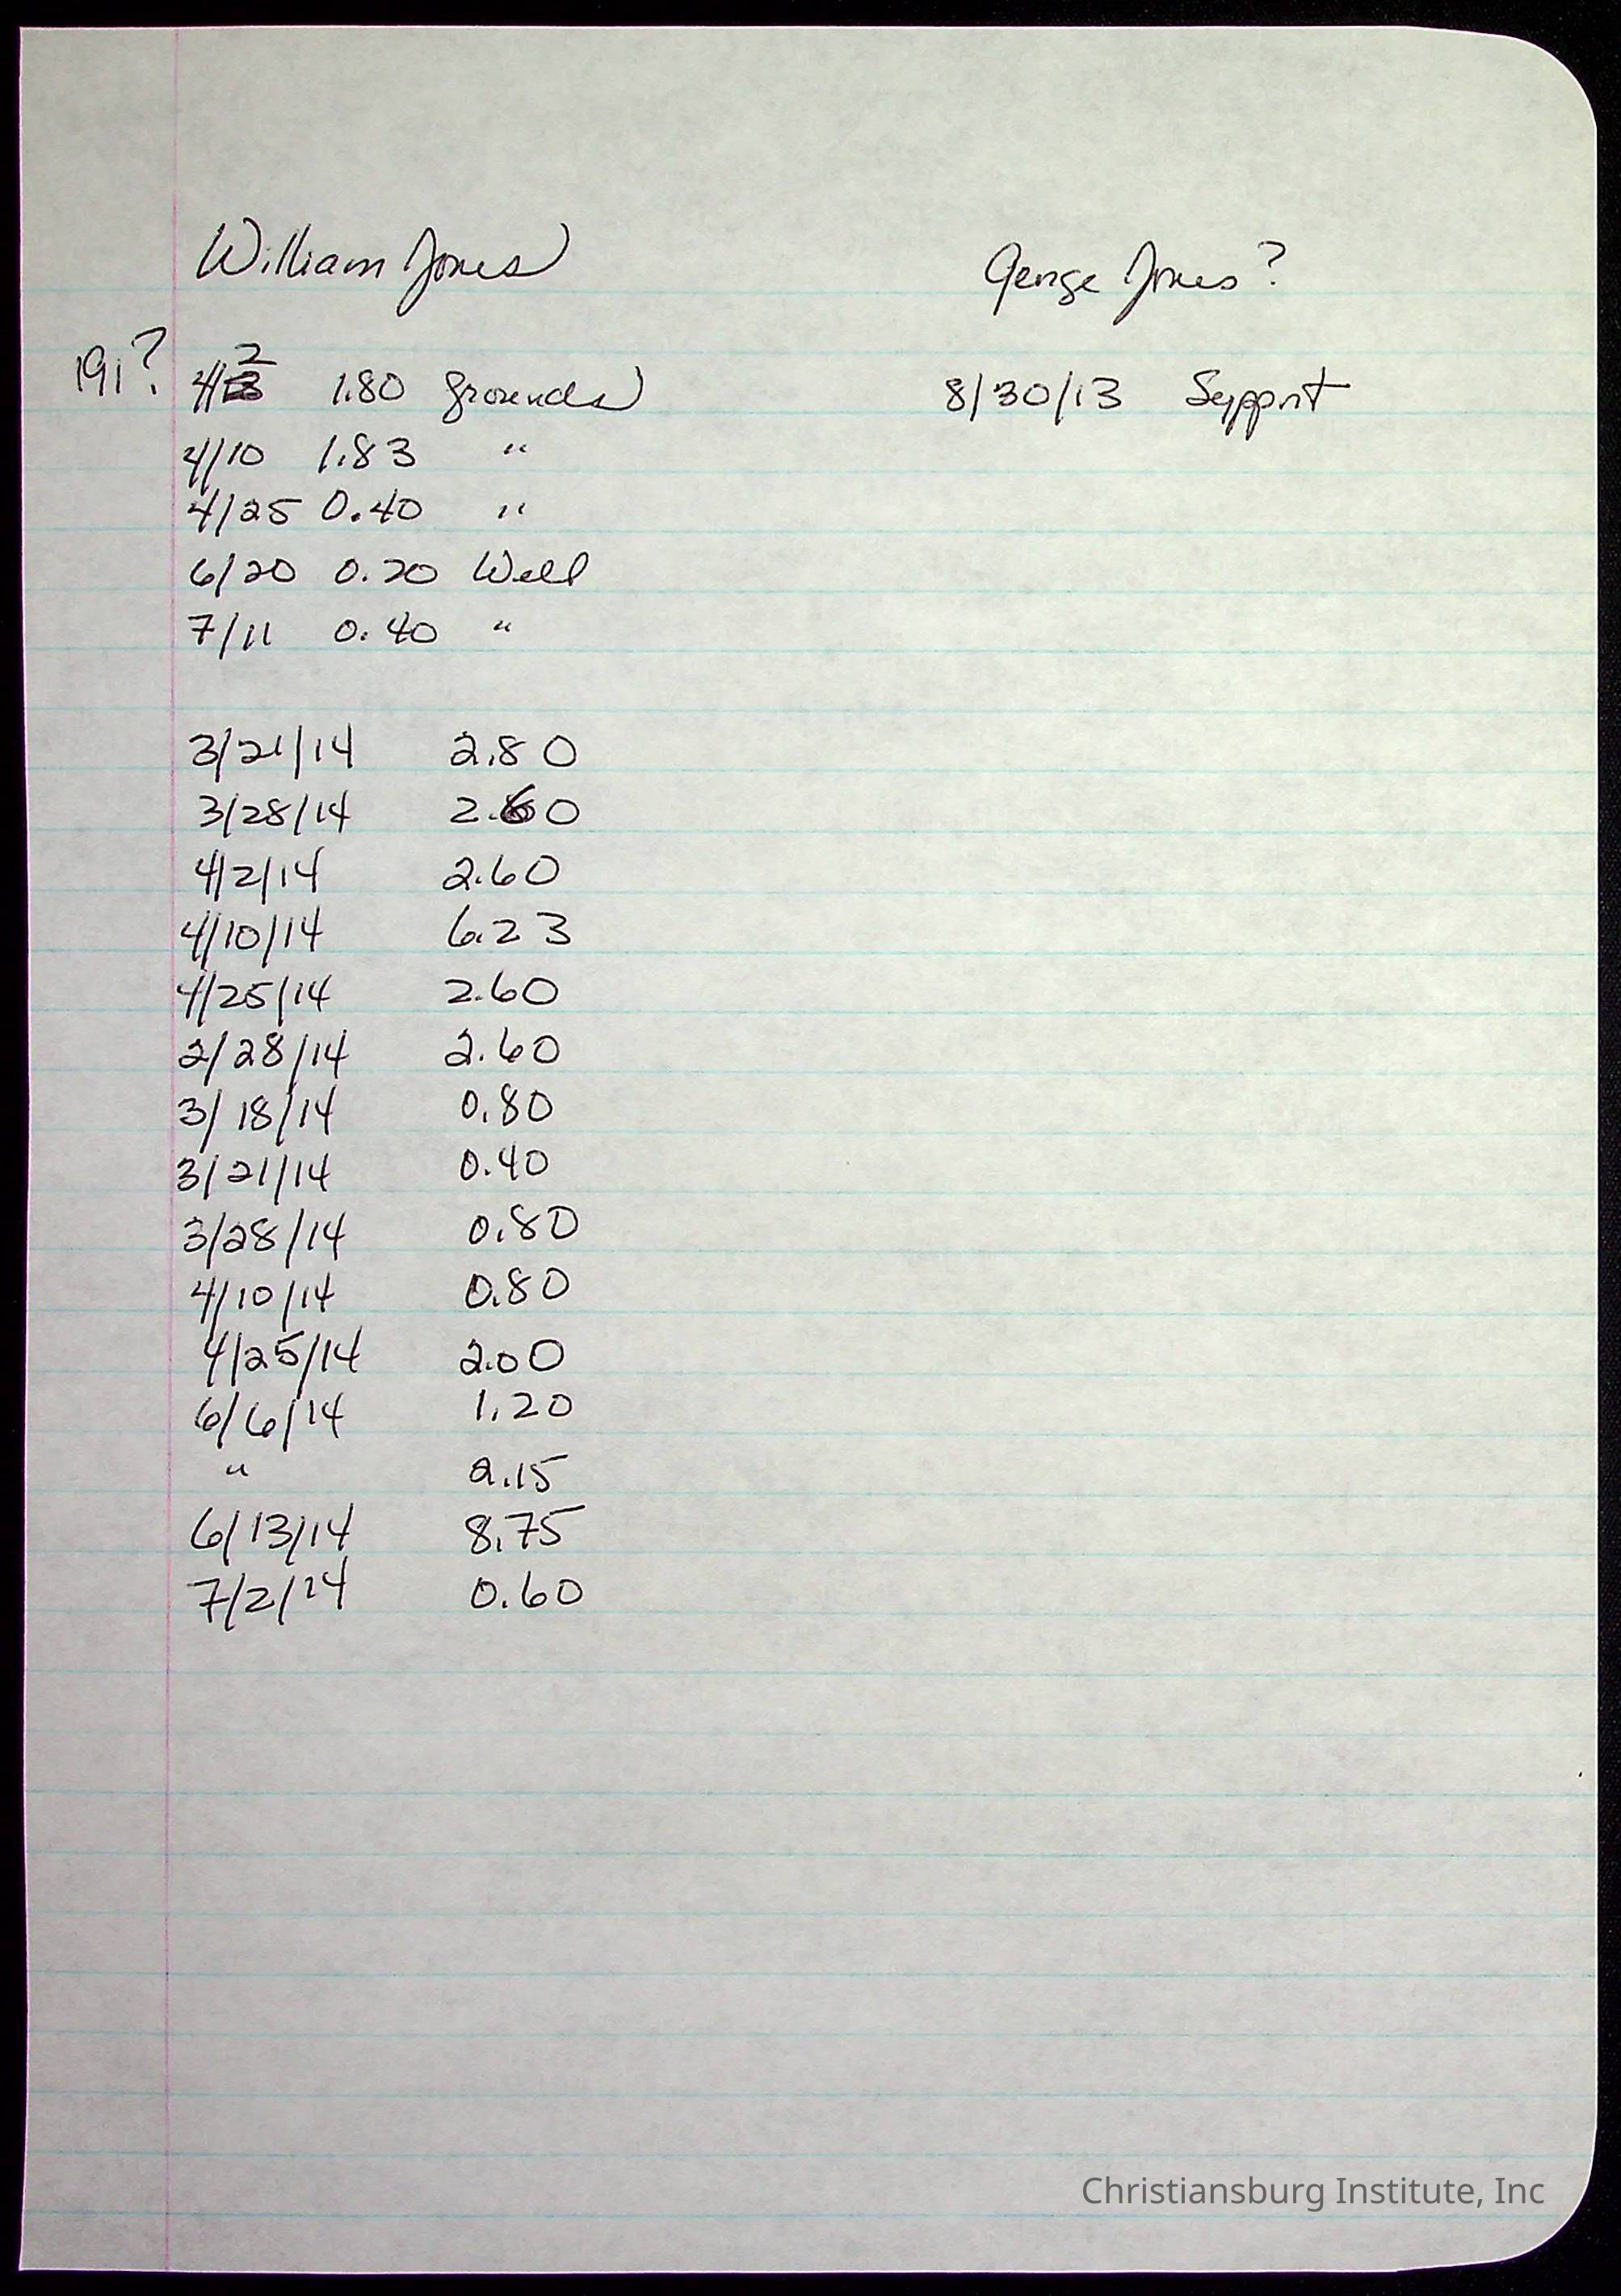 William Jones
George Jones?
191? 4/2 1.80 grounds
8/30/13 Support
4/10 1.83 "
4/25 0.40 "
6/20 0.20 Well
7/11 0.40 "
3/21/14 2.80
3/28/14 2.60
4/2/14 2.60
4/10/14 6.23
4/25/14 2.60
2/28/14 2.60
3/18/14 0.80
3/21/14 0.40
3/28/14 0.80
4/10/14 0.80
4/25/14 2.00
6/6/14 1.20
" 2.15
6/13/14 8.75
7/2/14 0.60
Christiansburg Institute, Inc